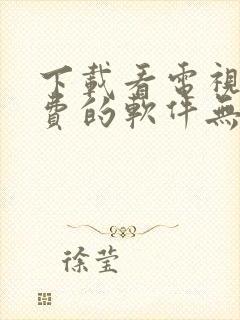 下載看電視
費的軟件無
徐莹